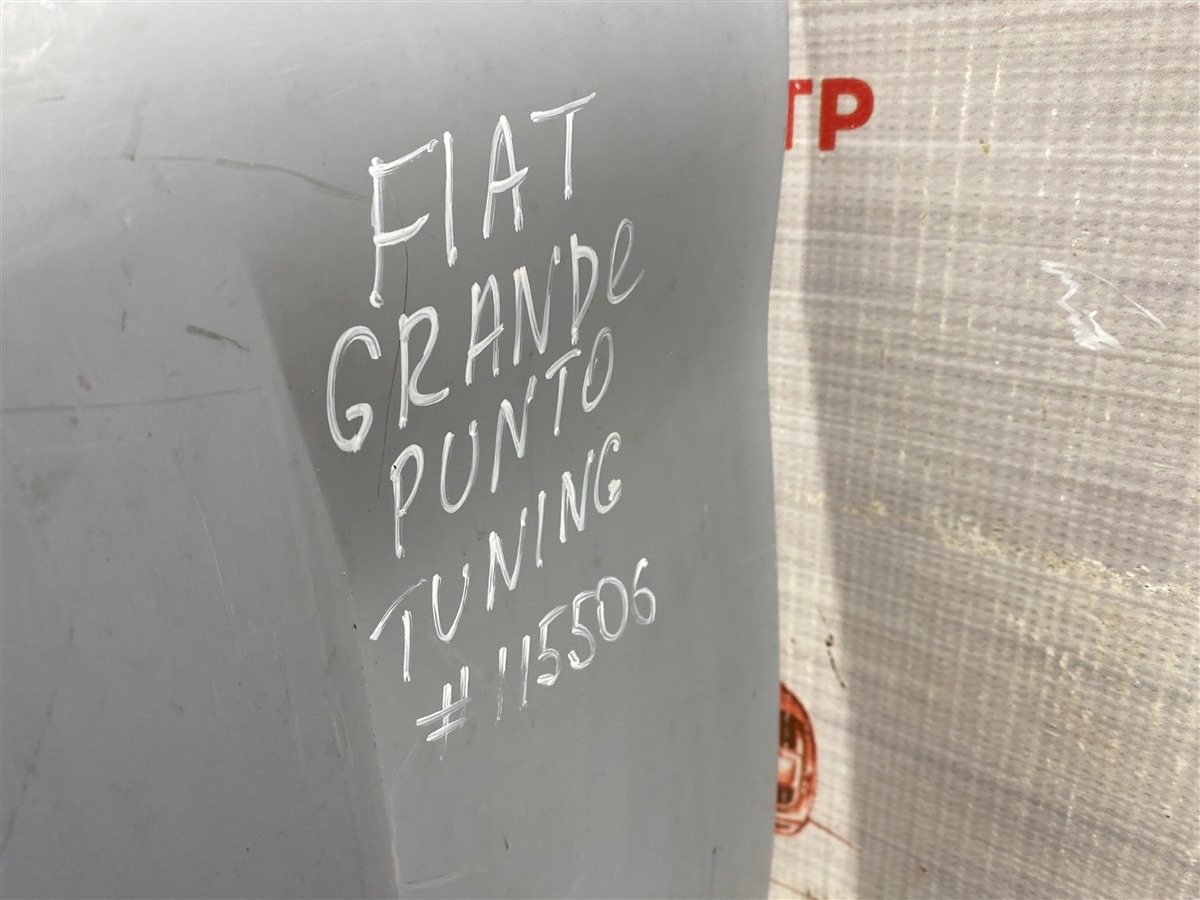 FIAT
GRANDe
PUNTO
TUNING
#115506
ТР